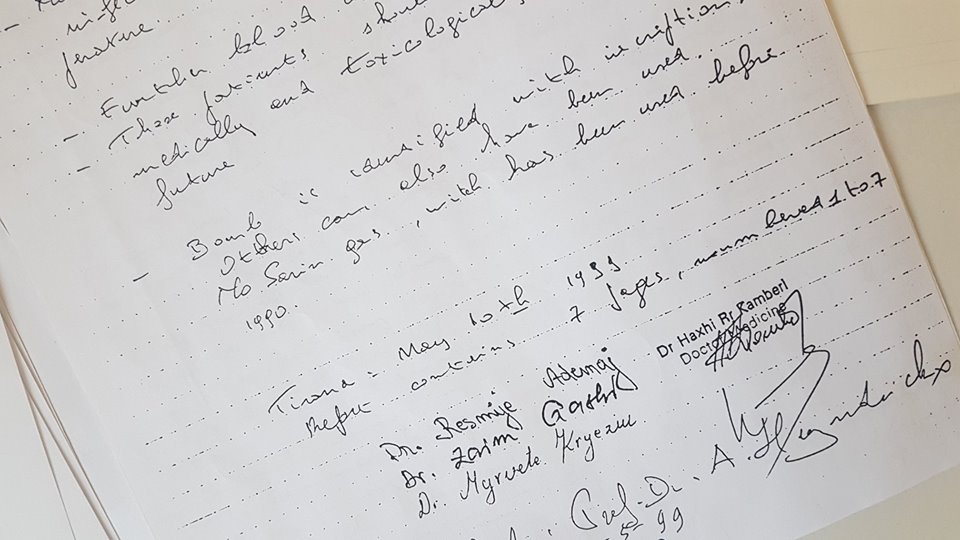 ferature
- Further blood
- These patients should
medically and toxicological
future
- Bomb is identified with inscriptions
Others can also have been used.
No Sarin gas, witch has been used before
1990.
Tirana - May 10th 1999
Report contains 7 pages, numbered 1 to 7
Dr Haxhi Rr Kamberi
Doctor Medicine
Dr. Resmije Ademaj
Dr. Zaim Gashi
Dr. Myrvete Kryeziu
Prof. Dr. A. Heyndrickx
99